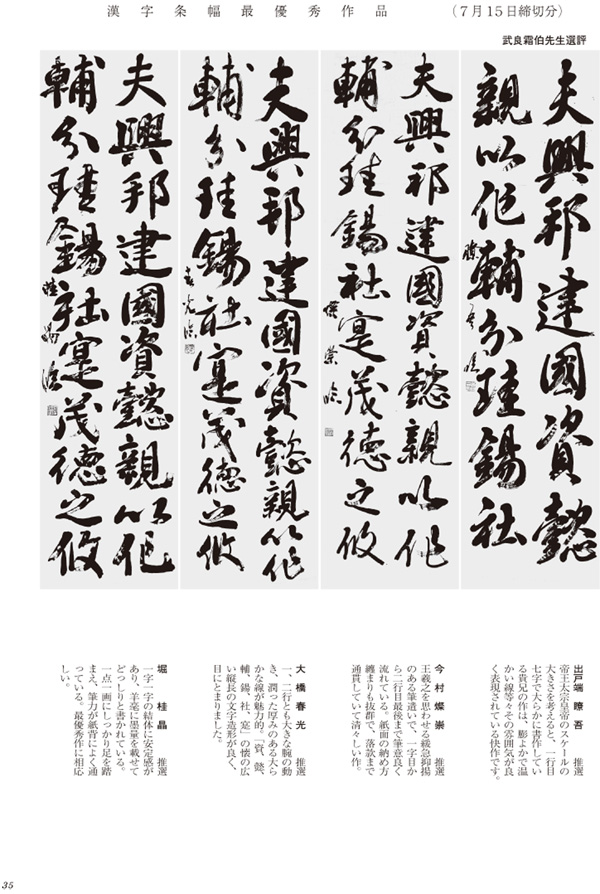 漢字条幅最優秀作品　（７月１５日締切分）
武良霜伯先生選評
夫興邦建國資懿
親以作輔分珪錫社
瞭吾臨
夫興邦建國資懿親以作
輔分珪錫社寔茂德之攸
燦崇臨
夫興邦建國資懿親以作
輔分珪錫社寔茂德之攸
春光臨
夫興邦建國資懿親以作
輔分珪錫社寔茂德之攸
桂晶臨
出戸端瞭吾　推選
帝王太宗皇帝のスケールの
大きさを考えると、一行目
七字で大らかに書作してい
る貴兄の作は、膨よかで温
かい線等々その雰囲気が良
く表現されている快作です。
今村燦崇　推選
王羲之を思わせる緩急抑揚
のある筆遣いで、一字目か
ら二行目最後まで筆意良く
流れている。紙面の納め方
纏まりも抜群で、落款まで
通貫していて清々しい作。
大橋春光　推選
一、二行とも大きな腕の動
き、潤った厚みのある大ら
かな線が魅力的。「資、懿、
輔、錫、社、寔」の懐の広
い縦長の文字造形が良く、
目にとまりました。
堀桂晶　推選
一字一字の結体に安定感が
あり、羊毫に墨量を載せて
どっしりと書かれている。
一点一画にしっかり足を踏
まえ、筆力が紙背によく通
っている。最優秀作に相応
しい。
35